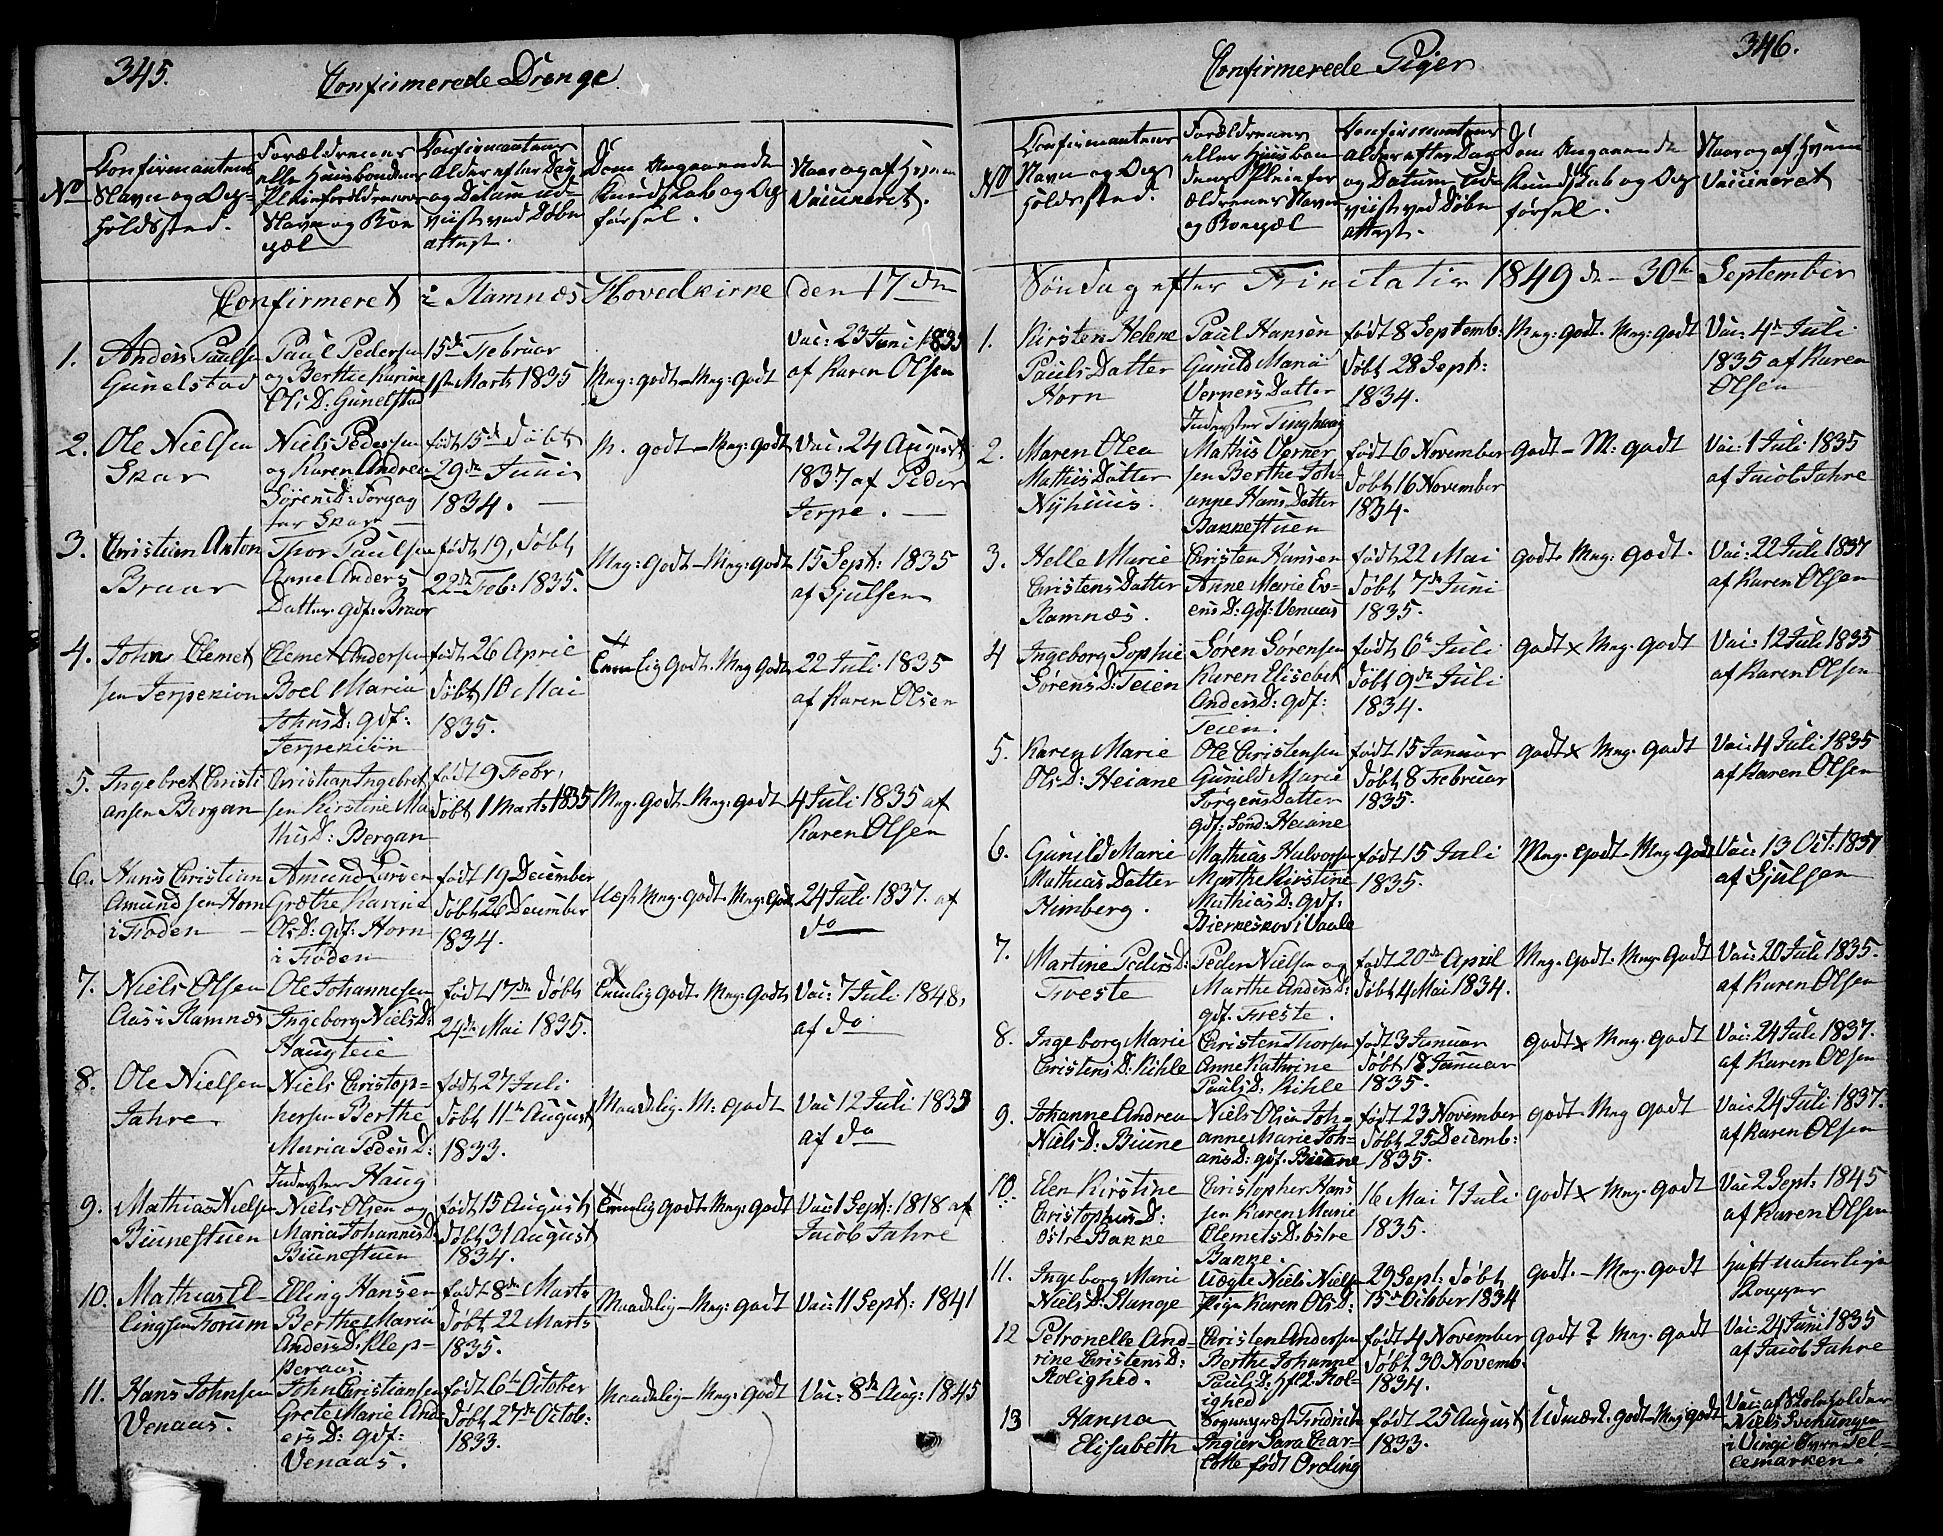 345.
Confirmerede Drenge.
No
Confirmantens
Navn og Op-
holdssted.
Forældrenes
eller Huusbondens
Pleieforældrenes
Navn og Boe
pæl
Confirmantens
Alder efter Dag
og Datum ud-
viist ved Døbe
attest.
Dom Angaaende
Kundskab og Op
førsel.
Naar og af Hvem
Vaccineret.
Confirmeret i Ramnæs Hovedkirke den 17de
1.
Anders Paulsen
Gunelstad
Paul Pedersen
og Berthe Karine
Ols D: Gunelstad
15de Februar
1ste Marts 1835
Mng: godt - Mng: godt
Vac: 23 Juni 1835
af Karen Olsen
2.
Ole Nielsen
Skar
Niels Pedersen
og Karen Andrea
Sørens D:
Skar
født 15de døbt
29de Juni
1834.
M. godt - Mng: godt
Vac: 24 August
1837 af Peder
Jerpe.
3.
Christian Anton
Braar
Thor Paulsen
Anne Anders
Datter gdf: Braar
født 19, døbt
22de Feb: 1835.
Mng: godt - Mng: godt
15 Sept: 1835
af Gjulsen
4.
John Clemet
sen Jerpekiøn
Clemet Andersen
Boel Maria
Johns D: gdf:
Jerpekiøn
født 26 April
døbt 10 Mai
1835.
Temlig godt. Mng godt
22 Juli 1835
af Karen Olsen
5.
Ingebret Christi
ansen Bergan
Christian Ingebret
sen Kirstine Ma
this D: Bergan
født 9 Febr,
døbt 1 Marts 1835
Mng: godt - Mng: godt
4 Juli 1835 af
Karen Olsen
6.
Hans Christian
Amundsen Horn
i Fioden
Amund Larsen
Grethe Karine
Ols D: gdf: Horn
i Fioden
født 19 December
døbt 26 December
1834.
Mng. godt - Mng. godt
24 Juli 1837. af
do
7.
Niels Olsen
Aas i Ramnæs
Ole Johannesen
Ingeborg Niels D:
Haugteie
født 17de døbt
24de Mai 1835.
Temlig godt. Mng: godt
Vac: 7 Juli 1848,
af do
8.
Ole Nielsen
Jahre
Niels Christop-
hersen Berthe
Maria Peders D:
Inderster Haug
født 27 Juli
døbt 11te August
1833.
Maadelig. M: godt
Vac: 12 Juli 1835
af do
9.
Mathias Nielsen
Biunestuen
Niels Olsen og
Maria Johannis D:
Biunestuen
født 15 August
døbt 31 August
1834.
Temlig godt. Mng: godt
Vac: 1 Sept: 1818 af
Jacob Jahre
10.
Mathias El-
lingsen Forum
Elling Hansen
Berthe Maria
Anders D: Klep-
peraas
født 8de Marts
døbt 22 Marts
1835.
Maadelig - Mng: godt
Vac: 11 Sept: 1841
11.
Hans Johnsen
Venaas.
John Christiansen
Grete Marie And-
ers D: gdf:
Venaas.
født 6te October
døbt 27de Octob:
1833.
Maadelig - Mng: godt
Vac: 8de Aug: 1845
346.
Confirmerede Piger
No
Confirmantens
Navn og Op
holdssted.
Forældrenes
eller Huusbon
dens Pleiefor
ældrenes Navn
og Boepæl
Confirmantens
Alder efter Dag
og Datum Ud-
viist ved Døbe
attest.
Dom Angaaende
Kundskab og Op
førsel.
Naar og af Hvem
Vaccineret
Søndag efter Trinitatis 1849 d. 30te September
1.
Kirsten Helene
Pauls Datter
Horn
Paul Hansen
Gunild Maria
Verners Datter
Inderster Tinghaug
født 8 Septemb:
døbt 28 Sept:
1834.
Mng: godt. Mng: godt
Vac: 4de Juli
1835 af Karen
Olsen
2.
Maren Olea
Mathis Datter
Nyhuus.
Mathis Verner
sen Berthe Joh-
anne Hans Datter
Bakkestuen
født 6 November
døbt 16 November
1834.
godt - M: godt
Vac: 1 Juli 1835
af Jacob Jahre
3.
Helle Marie
Christens Datter
Ramnæs.
Christen Hansen
Anne Marie Ev-
ens D: gdf: Venaas
født 22 Mai
døbt 7de Juni
1835.
godt. Mng: godt.
Vac: 22 Juli 1837
af Karen Olsen
4
Ingeborg Sophie
Sørens D: Teien
Søren Sørensen
Karen Elisebet
Anders D: gdf:
Teien.
født 6te Juli
døbt 9de Juli
1834.
godt x Mng. godt
Vac: 12 Juli 1835
af Karen Olsen
5.
Karen Marie
Ols D: Heiane
Ole Christensen
Gunild Marie
Jørgens Datter
gdf: Sønd: Heiane
født 15 Januar
døbt 8 Februar
1835.
godt x Mng. godt
Vac: 4 Juli 1835
af Karen Olsen
6.
Gunild Marie
Mathias Datter
Himberg.
Mathias Halvorsen
Marthe Kirstine
Mathias D: gdf.
Bierkeskov i Vaale
født 15 Juli
1835.
Mng. godt - Mng godt
Vac: 13 Oct: 1837
af Gjulsen
7.
Martine Peders D:
Freste
Peder Nielsen og
Marthe Anders D:
gdf. Freste.
født 20de April
døbt 4 Mai 1834.
Mng. godt. Mng: godt
Vac: 20 Juli 1835.
af Karen Olsen
8.
Ingeborg Marie
Christens D: Kihle
Christen Thorsen
Anne Kathrine
Pauls D: Kihle
født 3 Januar
døbt 18 Januar
1835.
godt x Mng. godt
Vac: 24 Juli 1837.
af Karen Olsen
9.
Johanne Andrea
Niels D: Biune
Niels Olsen Joh-
anne Marie Joh-
ans D: gdf. Biune
født 23 November
døbt 25 Decemb:
1835.
godt - Mng godt
Vac: 24 Juli 1837.
af Karen Olsen
10.
Elen Kirstine
Christophers D:
Østre Bakke
Christopher Hans
sen Karen Marie
Clemets D: Østre
Bakke.
16 Mai 7 Juli
1835.
godt x Mng. godt
Vac 2 Sept: 1845
af Karen Olsen
11.
Ingeborg Marie
Niels D: Slange
Uægte Niels Niels
Pige Karen Ols D:
29 Sept: døbt
15de October 1834
godt. - Mng. godt
Haft naturlige
Kopper
12
Petronelle And-
rine Christens D:
Rolighed.
Christen Andersen
Berthe Johanne
Pauls D: Rol-
ighed
født 4 November
døbt 30 Novemb.
1834.
godt ? Mng. godt
Vac: 24 Juni 1835
af Jacob Jahre
13
Hanna
Elisabeth
Sogneprest Fredrick
Ingier Sara Char-
lotte født Ording
født 25 August
1833.
Udmærk: godt - Mng godt
Vac: af Skoleholder
Niels Svenungsen
i Vinje Øvre Tel-
lemarken.